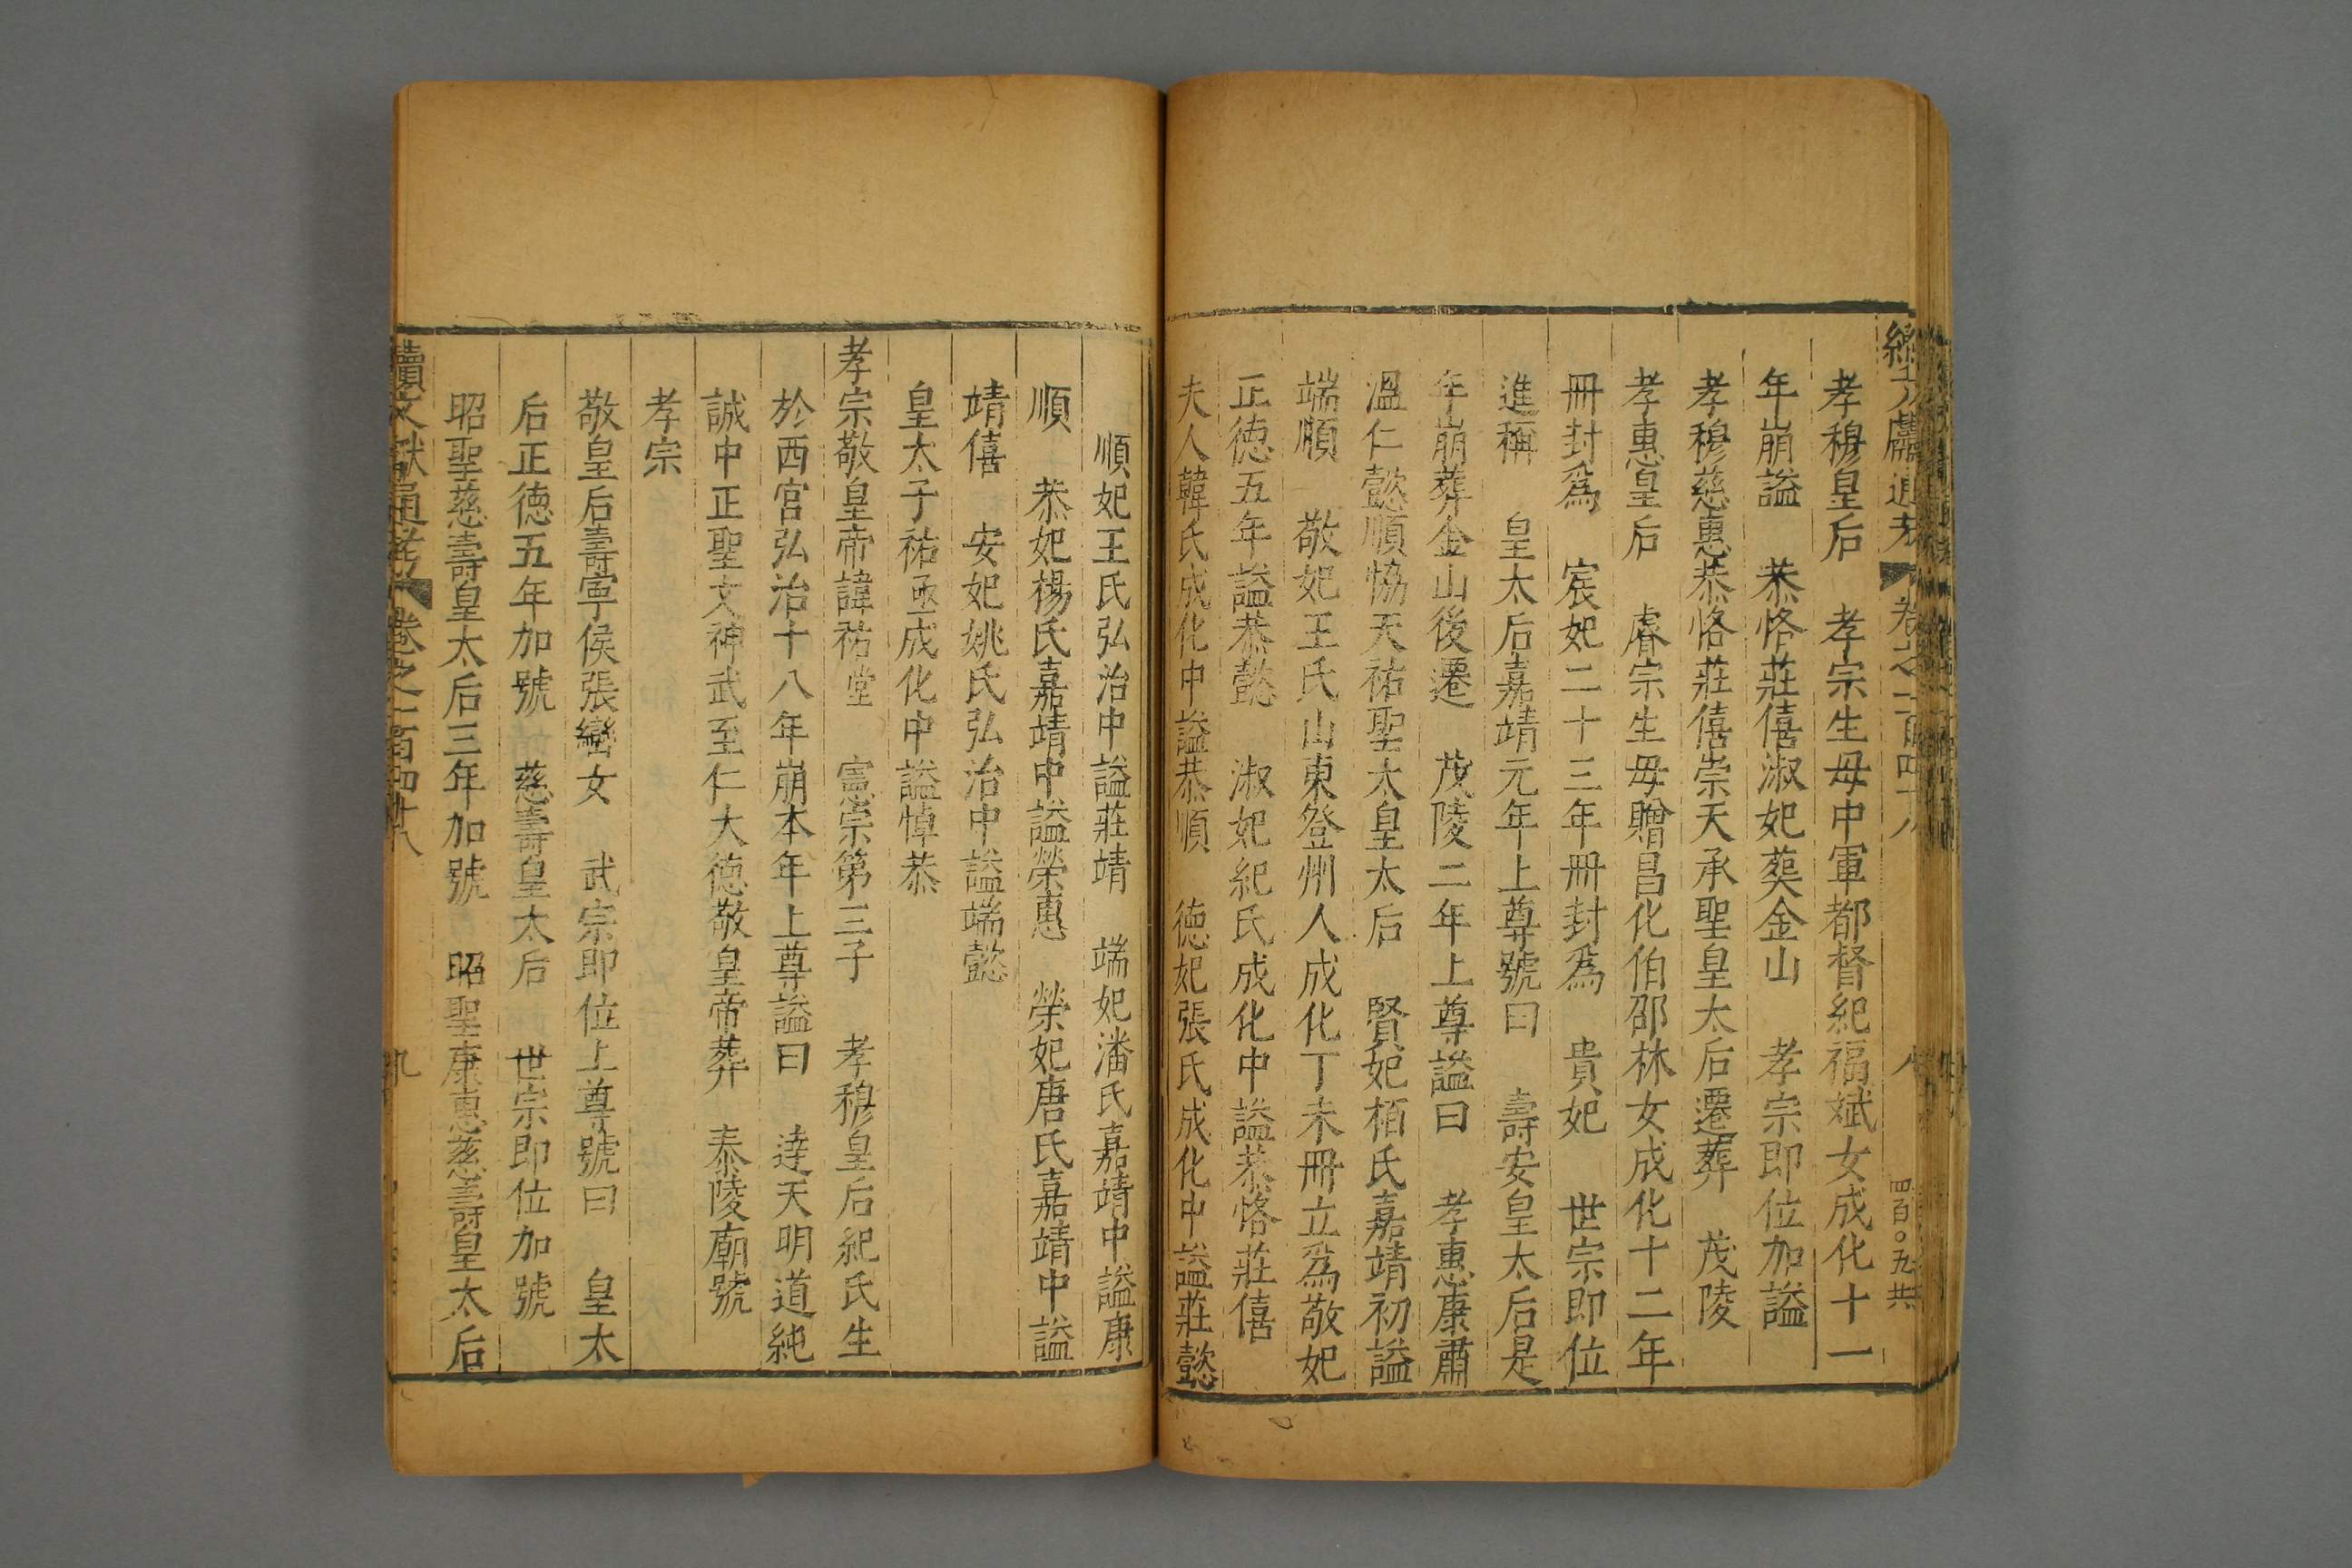 續文獻通考 卷之二百四十八 八 四百○九共
孝穆皇后 孝宗生母中軍都督紀福斌女成化十一
年崩謚 恭恪莊僖淑妃葬金山 孝宗即位加謚
孝穆慈惠恭恪莊僖崇天承聖皇太后遷葬 茂陵
孝惠皇后 睿宗生母贈昌化伯邵林女成化十二年
冊封爲 宸妃二十三年冊封爲 貴妃 世宗即位
進稱 皇太后嘉靖元年上尊號曰 壽安皇太后是
年崩葬金山後遷 茂陵二年上尊謚曰 孝惠康肅
溫仁懿順恊天祐聖太皇太后 賢妃栢氏嘉靖初謚
端順 敬妃王氏山東登州人成化丁未冊立爲敬妃
正徳五年謚恭懿 淑妃紀氏成化中謚恭恪莊僖
夫人韓氏成化中謚恭順 徳妃張氏成化中謚莊懿
順妃王氏弘治中謚莊靖 端妃潘氏嘉靖中謚康
順 恭妃楊氏嘉靖中謚榮惠 榮妃唐氏嘉靖中謚
靖僖 安妃姚氏弘治中謚端懿
皇太子祐亟成化中謚悼恭
孝宗敬皇帝諱祐堂 憲宗第三子 孝穆皇后紀氏生
於西宮弘治十八年崩本年上尊謚曰 達天明道純
誠中正聖文神武至仁大徳敬皇帝葬 泰陵廟號
孝宗
敬皇后壽寧侯張巒女 武宗即位上尊號曰 皇太
后正徳五年加號 慈壽皇太后 世宗即位加號
昭聖慈壽皇太后三年加號 昭聖康惠慈壽皇太后
續文獻通考 卷之二百四十八 九